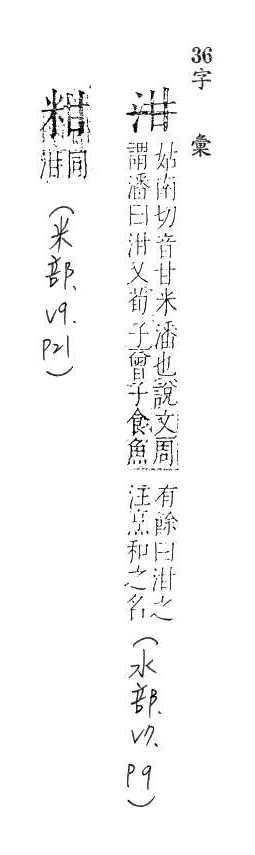 36
字彙
泔
姑南切音甘米潘也說文周
謂潘曰泔又荀子曾子食魚
有餘曰泔之
注烹和之名
(水部. V7. P9)
䊐
同
泔
(米部. V9. P21)